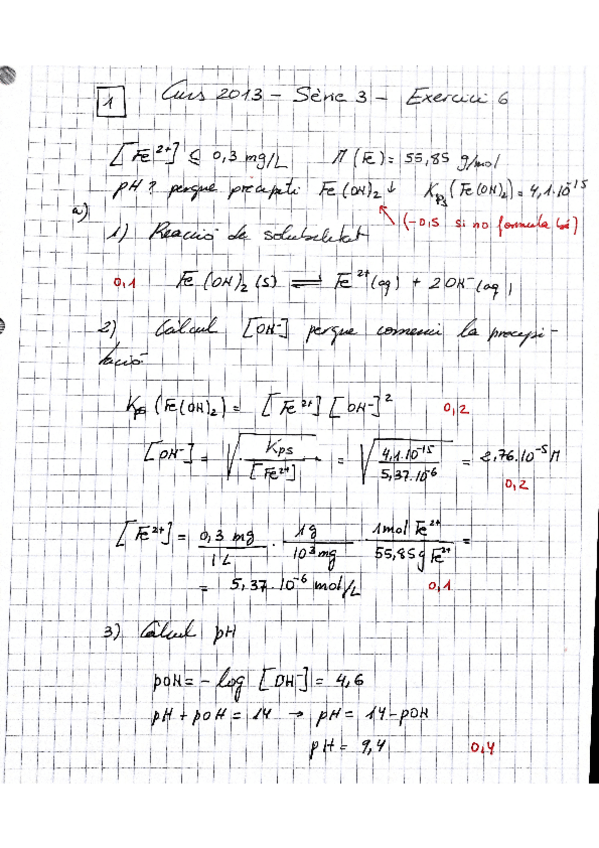 1 Curs 2013 – Sèrie 3 – Exercici 6
[Fe²⁺] ≤ 0,3 mg/L M (Fe) = 55,85 g/mol
pH? perque precipiti Fe(OH)₂↓ Kps (Fe(OH)₂) = 4,1·10⁻¹⁵
a) (-0,5 si no formula bé)
1) Reacció de solubilitat
0,1 Fe(OH)₂ (s) ⇌ Fe²⁺(aq) + 2OH⁻(aq)
2) Càlcul [OH⁻] perque comenci la precipi-
tació
Kps (Fe(OH)₂) = [Fe²⁺] [OH⁻]² 0,2
[OH⁻] = √(Kps / [Fe²⁺]) = √(4,1·10⁻¹⁵ / 5,37·10⁻⁶) = 2,76·10⁻⁵ M
0,2
[Fe²⁺] = 0,3 mg / 1 L · 1g / 10³ mg · 1mol Fe²⁺ / 55,85 g Fe²⁺ =
= 5,37·10⁻⁶ mol/L 0,1
3) Càlcul pH
pOH = - log [OH⁻] = 4,6
pH + pOH = 14 → pH = 14 - pOH
pH = 9,4 0,4